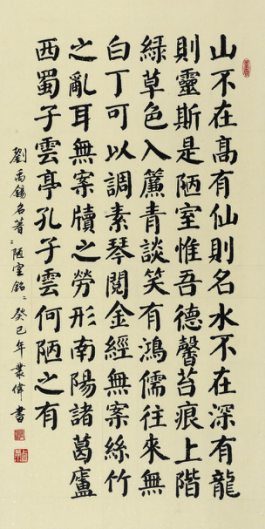 山不在髙有仙則名水不在深有龍
則靈斯是陋室惟吾德馨苔痕上階
綠草色入簾青談笑有鴻儒往來無
白丁可以調素琴閱金經無案絲竹
之亂耳無案牘之勞形南陽諸葛廬
西蜀子雲亭孔子雲何陋之有
劉禹錫名著陋室銘癸巳年叢偉書